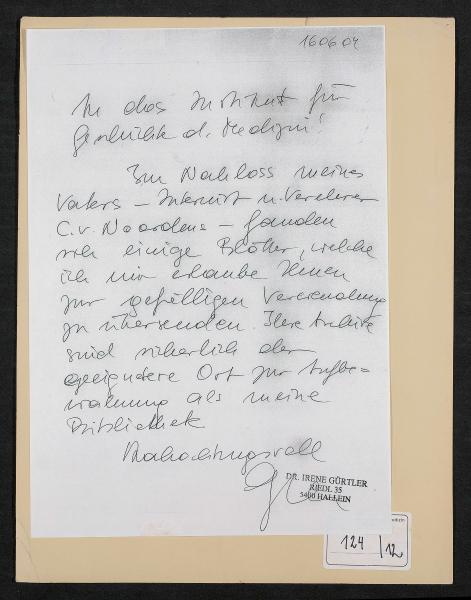 160604
An das Institut für
Geschichte d. Medizin!
Im Nachlass meines
Vaters – Internist u. Verehrer
C. v. Noordens – fanden
sich einige Blätter, welche
ich mir erlaube Ihnen
zur gefälligen Verwendung
zu übersenden. Ihre Archive
sind sicherlich der
geeignetere Ort zur Aufbe=
wahrung als meine
Bibliothek
Hochachtungsvoll
DR. IRENE GÜRTLER
RIEDL 35
5400 HALLEIN
124/12